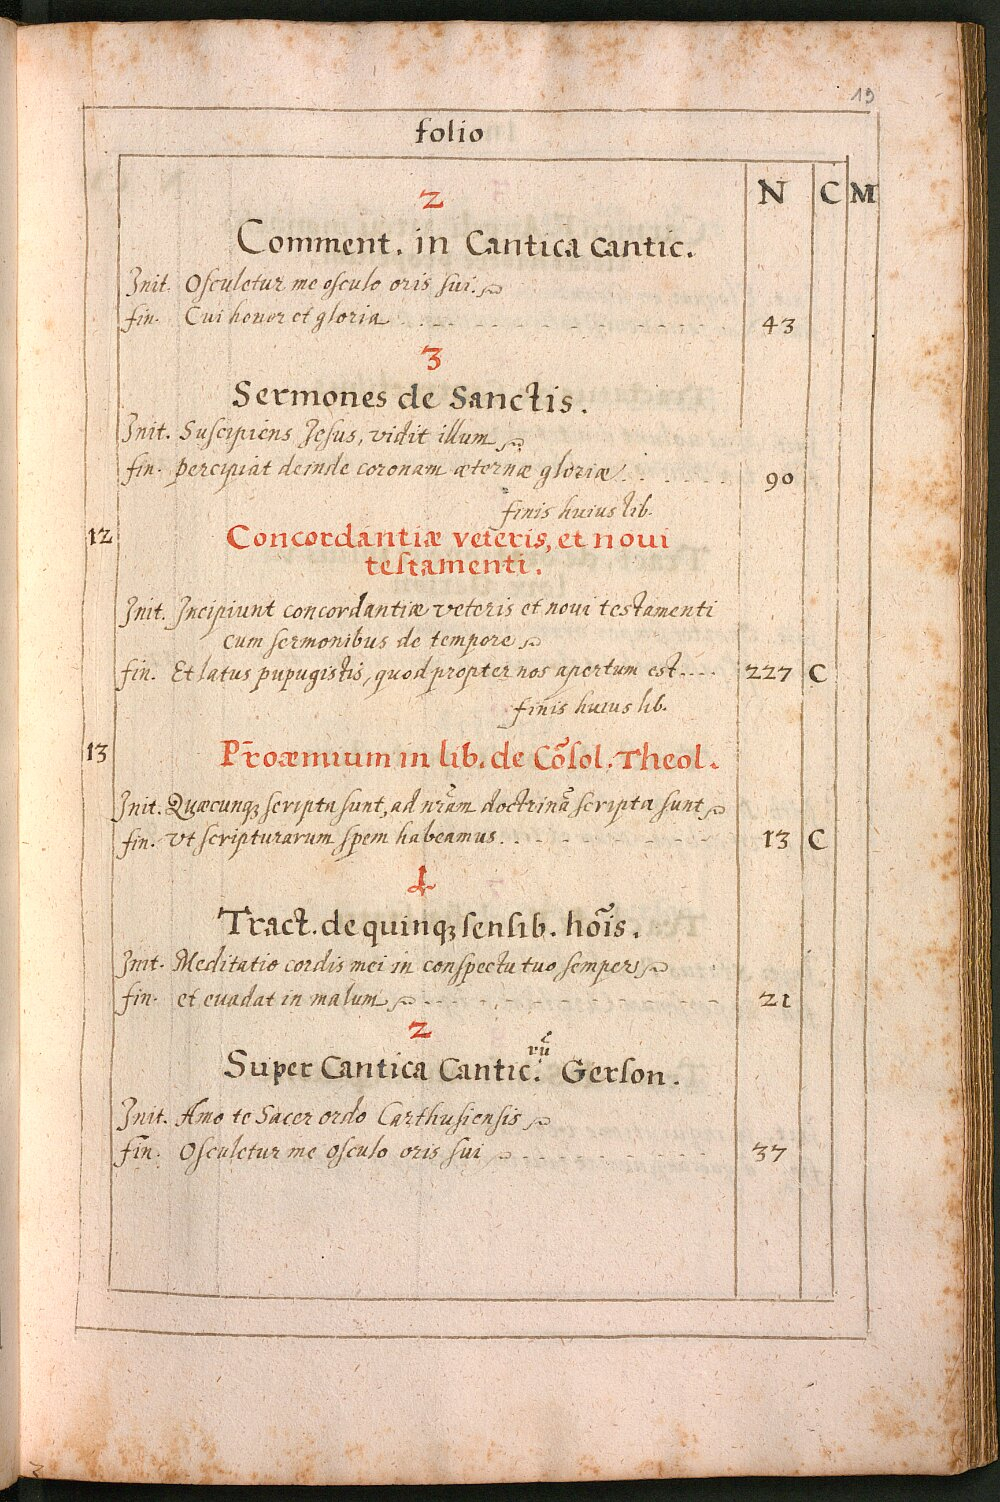 19
folio
N C M
2
Comment. in Cantica Cantic.
Init. Osculetur me osculo oris sui.
fin. Cui honor et gloria . . . . 43
3
Sermones de Sanctis.
Init. Suscipiens Jesus, vidit illum
fin. percipiat deinde coronam æternæ gloriæ . . . . 90
finis huius lib.
12 Concordantiæ veteris, et noui
testamenti.
Init. Incipiunt concordantiæ veteris et noui testamenti
cum sermonibus de tempore
fin. Et latus pupugistis, quod propter nos apertum est.... 227 C
finis huius lib.
13 Proæmium in lib. de Cõsol. Theol.
Init. Quæcunqꝫ scripta sunt, ad nr̃am doctrinã scripta sunt
fin. vt scripturarum spem habeamus. . . . . 13 C
1
Tract. de quinqꝫ sensib. hoĩs.
Init. Meditatio cordis mei in conspectu tuo semper
fin. et euadat in malum . . . . 21
2
Super Cantica Cantic.rũ Gerson.
Init. Amo te Sacer ordo Carthusiensis
fin. Osculetur me osculo oris sui . . . . 37